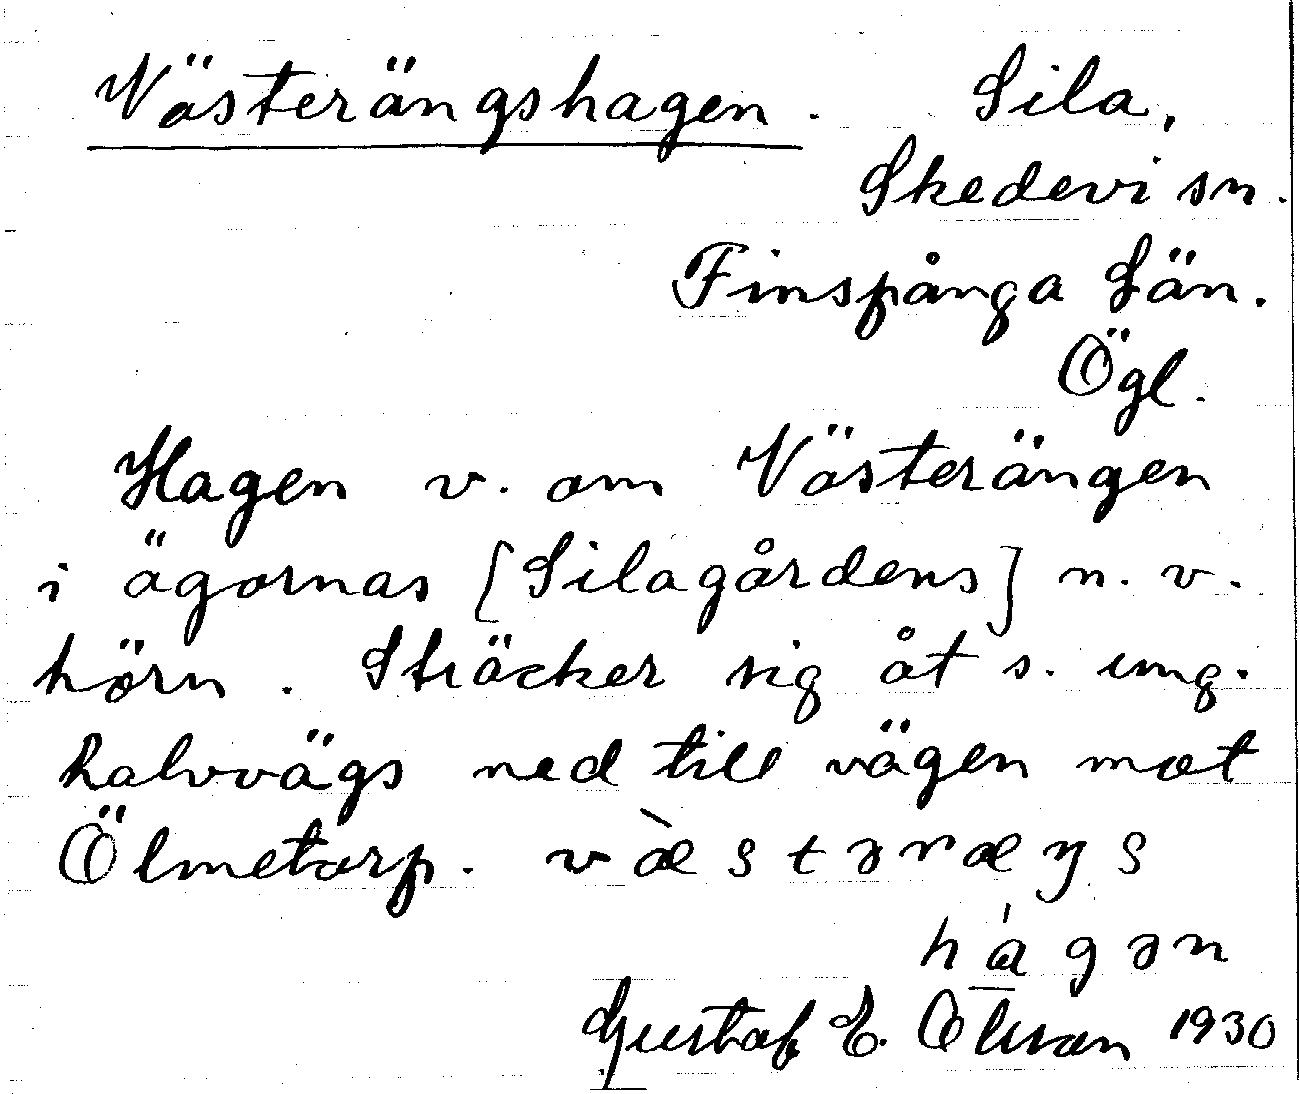 Västerängshagen. Sila,
Skedevi sn.
Finspånga Län.
Ögl.
Hagen v. om Västerängen
i ägornas [Silagårdens] n. v.
hörn. Sträcker sig åt s. ung.
halvvägs ned till vägen mot
Ölmetorp. væ̀stəræŋs
há̱gən
Gustaf E. Olsson 1930